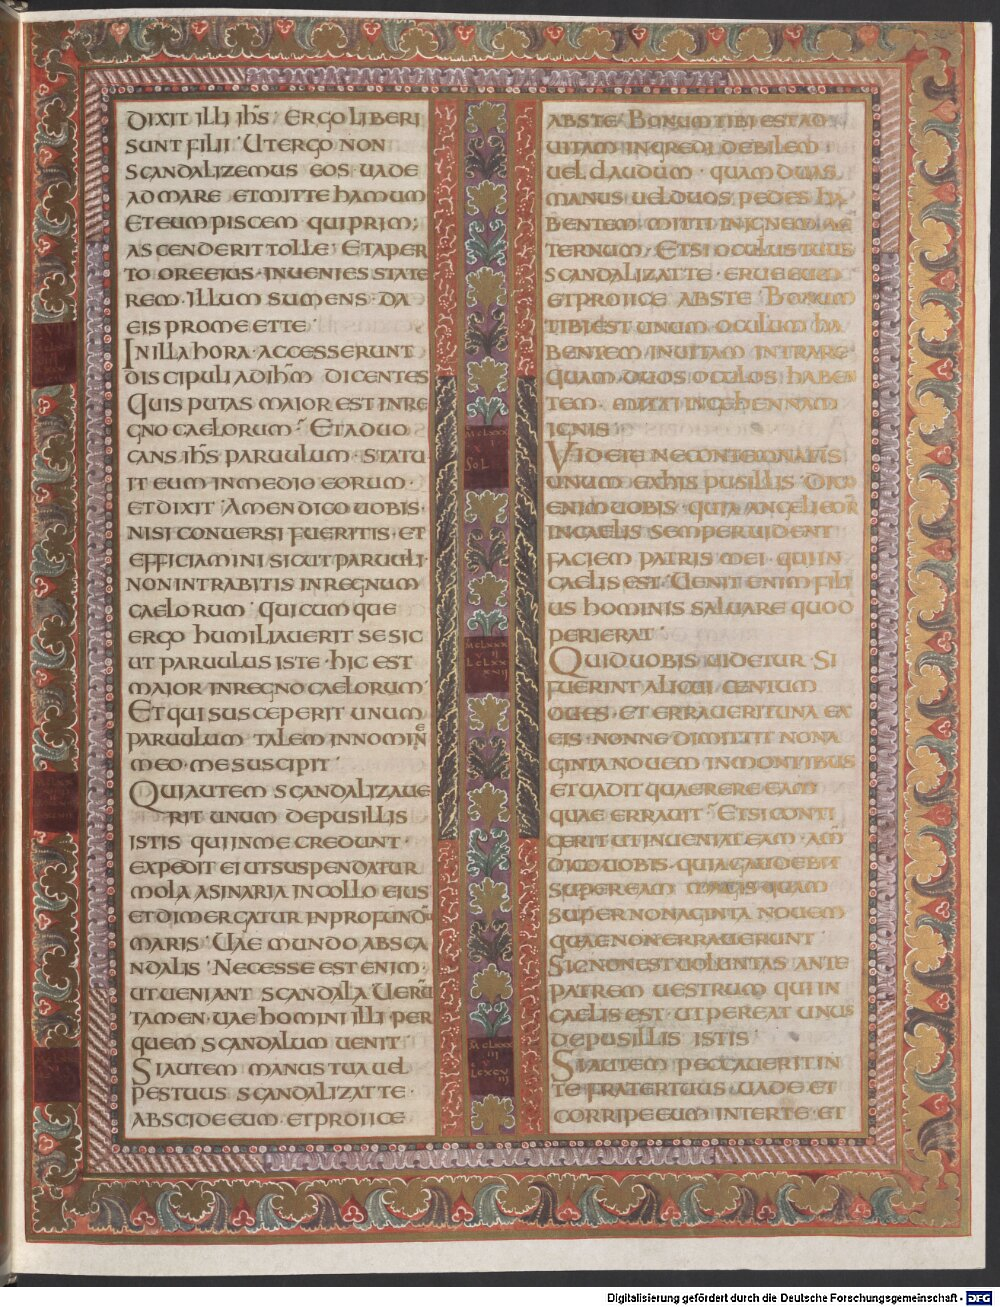 DIXIT ILLI IHS · ERGO LIBERI
SUNT FILII · UT ERGO NON
SCANDALIZEMUS EOS · UADE
AD MARE ET MITTE HAMUM
ET EUM PISCEM QUI PRIM;
ASCENDERIT TOLLE · ET APER
TO ORE EIUS · INUENIES STATE
REM · ILLUM SUMENS · DA
EIS PRO ME ET TE ·
IN ILLA HORA · ACCESSERUNT
DISCIPULI AD IHM DICENTES
QUIS PUTAS MAIOR EST IN RE
GNO CAELORUM · ET ADUO
CANS IHS PARUULUM · STATU
IT EUM IN MEDIO EORUM ·
ET DIXIT · AMEN DICO UOBIS ·
NISI CONUERSI FUERITIS · ET
EFFICIAMINI SICUT PARUULI ·
NON INTRABITIS IN REGNUM
CAELORUM · QUICUMQUE
ERGO HUMILIAUERIT SE SIC
UT PARUULUS ISTE · HIC EST
MAIOR IN REGNO CAELORUM ·
ET QUI SUSCEPERIT UNUM
PARUULUM TALEM IN NOMINE
MEO · ME SUSCIPIT ·
QUI AUTEM SCANDALIZAUE
RIT UNUM DE PUSILLIS
ISTIS QUI IN ME CREDUNT ·
EXPEDIT EI UT SUSPENDATUR
MOLA ASINARIA IN COLLO EIUS
ET DIMERGATUR IN PROFUNDŪ
MARIS · UAE MUNDO AB SCA
NDALIS · NECESSE EST ENIM ·
UT UENIANT SCANDALA UERŪ
TAMEN · UAE HOMINI ILLI · PER
QUEM SCANDALUM UENIT
SI AUTEM MANUS TUA UEL
PES TUUS SCANDALIZAT TE ·
ABSCIDE EUM · ET PROIICE
ABS TE BONUM TIBI EST AD
UITAM INGREDI DEBILEM
UEL CLAUDUM · QUAM DUAS
MANUS UEL DUOS PEDES HA
BENTEM MITTI IN IGNEM AE
TERNUM · ET SI OCULUS TUUS
SCANDALIZAT TE · ERUE EUM
ET PROIICE ABS TE · BONUM
TIBI EST UNUM OCULUM HA
BENTEM IN UITAM INTRARE
QUAM DUOS OCULOS HABEN
TEM · MITTI IN GEHENNAM
IGNIS ·
UIDETE NE CONTEMNATIS
UNUM EX HIS PUSILLIS · DICO
ENIM UOBIS · QUIA ANGELI EOR
IN CAELIS SEMPER UIDENT
FACIEM PATRIS MEI · QUI IN
CAELIS EST · UENIT ENIM FILI
US HOMINIS SALUARE QUOD
PERIERAT ·
QUID UOBIS UIDETUR · SI
FUERINT ALICUI CENTUM
OUES · ET ERRAUERIT UNA EX
EIS · NONNE DIMITTIT NONA
GINTA NOUEM IN MONTIBUS
ET UADIT QUAERERE EAM
QUAE ERRAUIT · ET SI CONTI
GERIT UT INUENIAT EAM · AM
DICO UOBIS · QUIA GAUDEBIT
SUPER EAM MAGIS QUAM
SUPER NONAGINTA NOUEM
QUAE NON ERRAUERUNT
SIC NON EST UOLUNTAS ANTE
PATREM UESTRUM QUI IN
CAELIS EST · UT PEREAT UNUS
DE PUSILLIS ISTIS
SI AUTEM PECCAUERIT IN
TE FRATER TUUS · UADE ET
CORRIPE EUM INTER TE · ET
SOL
Digitalisierung gefördert durch die Deutsche Forschungsgemeinschaft - DFG